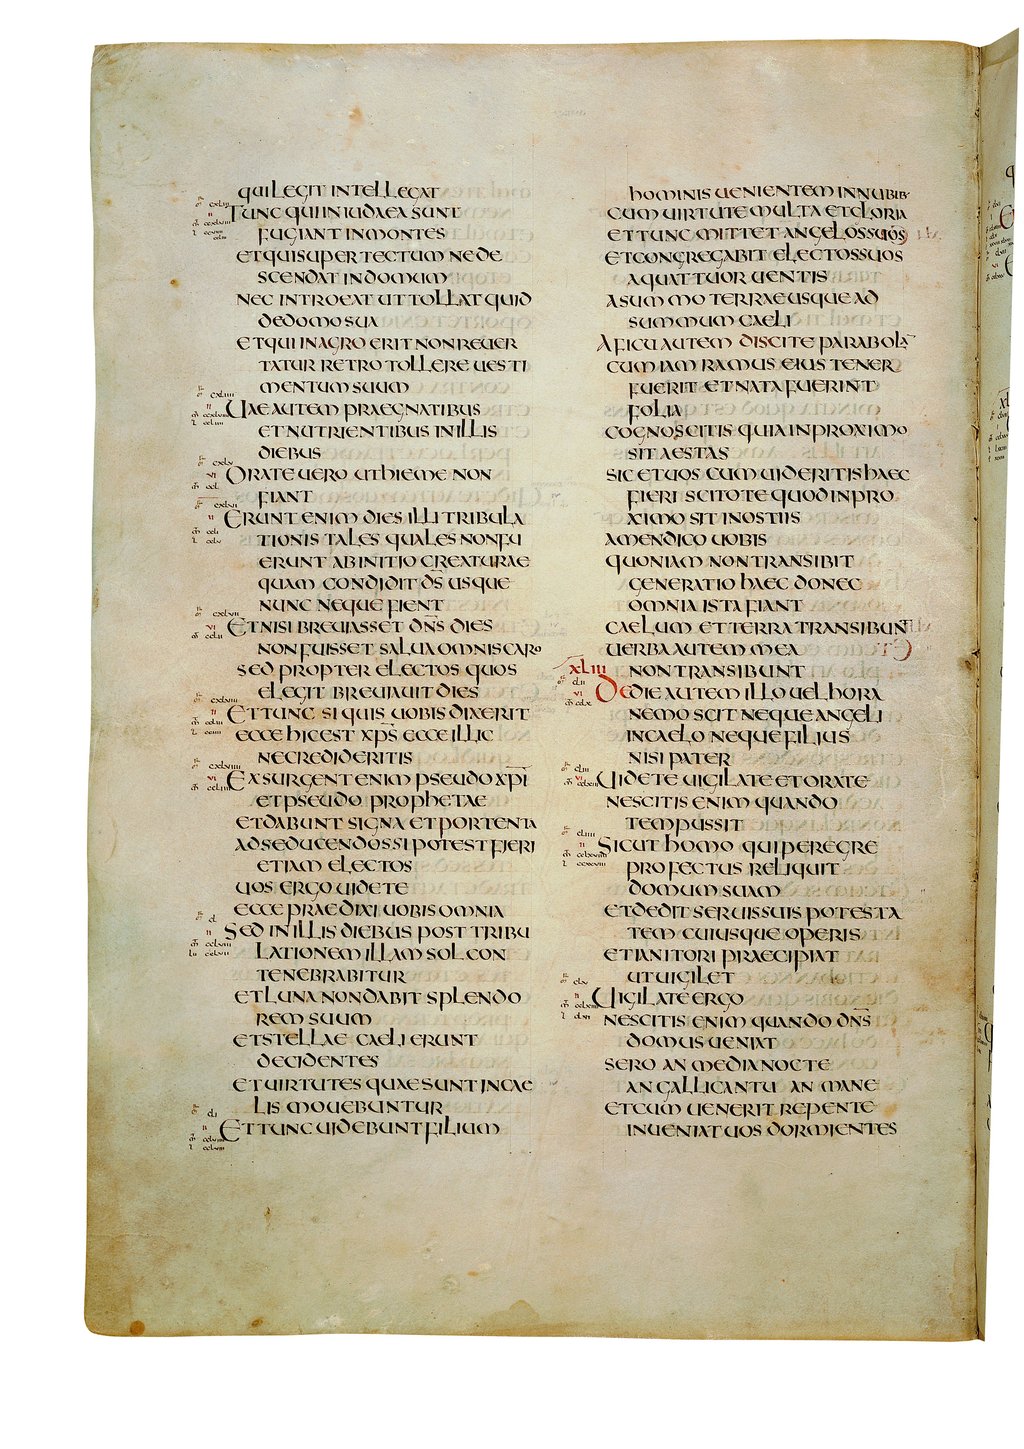 QUI LEGIT INTELLEGAT
TUNC QUI IN IUDAEA SUNT
FUGIANT IN MONTES
ET QUI SUPER TECTUM NE DE
SCENDAT IN DOMUM
NEC INTROEAT UT TOLLAT QUID
DE DOMO SUA
ET QUI IN AGRO ERIT NON REUER
TATUR RETRO TOLLERE UESTI
MENTUM SUUM
UAE AUTEM PRAEGNATIBUS
ET NUTRIENTIBUS IN ILLIS
DIEBUS
ORATE UERO UT HIEME NON
FIANT
ERUNT ENIM DIES ILLI TRIBULA
TIONIS TALES QUALES NON FU
ERUNT AB INITIO CREATURAE
QUAM CONDIDIT D̅S̅ USQUE
NUNC NEQUE FIENT
ET NISI BREUIASSET D̅N̅S̅ DIES
NON FUISSET SALUA OMNIS CARO
SED PROPTER ELECTOS QUOS
ELEGIT BREUIAUIT DIES
ET TUNC SI QUIS UOBIS DIXERIT
ECCE HIC EST X̅P̅S̅ ECCE ILLIC
NE CREDIDERITIS
EXSURGENT ENIM PSEUDO X̅P̅I̅
ET PSEUDO PROPHETAE
ET DABUNT SIGNA ET PORTENTA
AD SEDUCENDOS SI POTEST FIERI
ETIAM ELECTOS
UOS ERGO UIDETE
ECCE PRAEDIXI UOBIS OMNIA
SED IN ILLIS DIEBUS POST TRIBU
LATIONEM ILLAM SOL CON
TENEBRABITUR
ET LUNA NON DABIT SPLENDO
REM SUUM
ET STELLAE CAELI ERUNT
DECIDENTES
ET UIRTUTES QUAE SUNT IN CAE
LIS MOUEBUNTUR
ET TUNC UIDEBUNT FILIUM
HOMINIS UENIENTEM IN NUBIB·
CUM UIRTUTE MULTA ET GLORIA
ET TUNC MITTET ANGELOS SUOS
ET CONGREGABIT ELECTOS SUOS
A QUATTUOR UENTIS
A SUMMO TERRAE USQUE AD
SUMMUM CAELI
A FICU AUTEM DISCITE PARABOLA̅
CUM IAM RAMUS EIUS TENER
FUERIT ET NATA FUERINT
FOLIA
COGNOSCITIS QUIA IN PROXIMO
SIT AESTAS
SIC ET UOS CUM UIDERITIS HAEC
FIERI SCITOTE QUOD IN PRO
XIMO SIT IN OSTIIS
AMEN DICO UOBIS
QUONIAM NON TRANSIBIT
GENERATIO HAEC DONEC
OMNIA ISTA FIANT
CAELUM ET TERRA TRANSIBUNT
UERBA AUTEM MEA
XLIII NON TRANSIBUNT
DE DIE AUTEM ILLO UEL HORA
NEMO SCIT NEQUE ANGELI
IN CAELO NEQUE FILIUS
NISI PATER
UIDETE UIGILATE ET ORATE
NESCITIS ENIM QUANDO
TEMPUS SIT
SICUT HOMO QUI PEREGRE
PROFECTUS RELIQUIT
DOMUM SUAM
ET DEDIT SERUIS SUIS POTESTA
TEM CUIUSQUE OPERIS
ET IANITORI PRAECIPIAT
UT UIGILET
UIGILATE ERGO
NESCITIS ENIM QUANDO D̅N̅S̅
DOMUS UENIAT
SERO AN MEDIA NOCTE
AN GALLICANTU AN MANE
ET CUM UENERIT REPENTE
INUENIAT UOS DORMIENTES